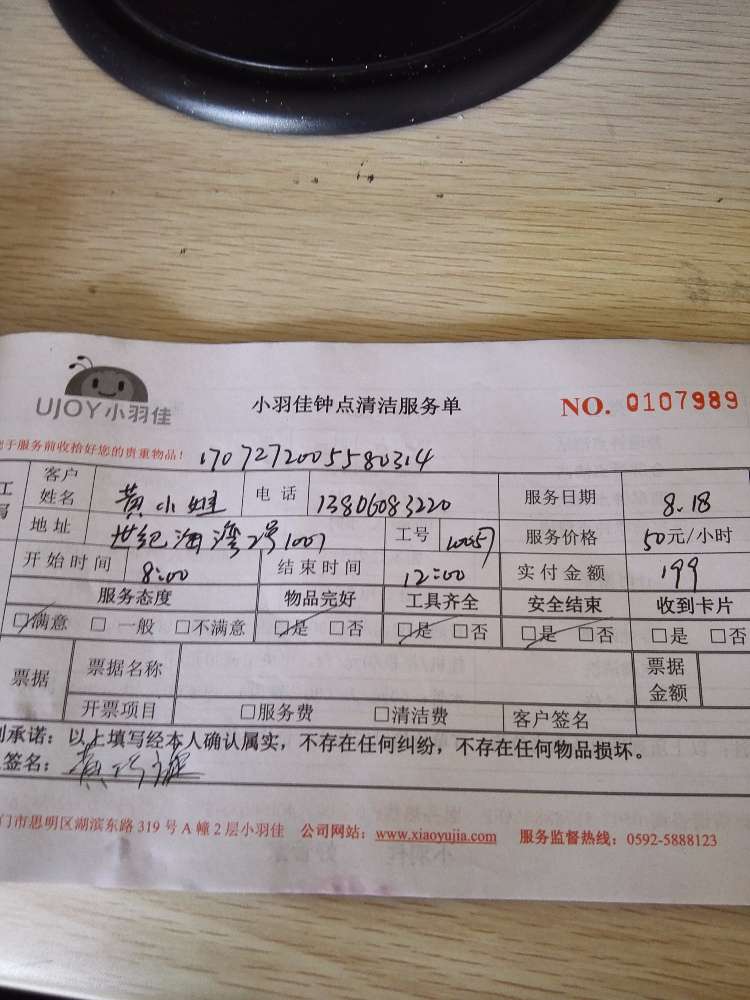 UJOY小羽佳 小羽佳钟点清洁服务单 NO. 0107989
于服务前收拾好您的贵重物品！ 1707272005580314
客户姓名 黄小姐 电话 13806083220 服务日期 8.18
地址 世纪海湾2号1007 工号 10057 服务价格 50元/小时
开始时间 8:00 结束时间 12:00 实付金额 199
服务态度 物品完好 工具齐全 安全结束 收到卡片
☑满意 □一般 □不满意 ☑是 □否 ☑是 □否 ☑是 □否 □是 □否
票据 票据名称 票据金额
开票项目 □服务费 □清洁费 客户签名
承诺：以上填写经本人确认属实，不存在任何纠纷，不存在任何物品损坏。
签名：
门市思明区湖滨东路 319 号 A 幢 2 层小羽佳 公司网站：www.xiaoyujia.com 服务监督热线：0592-5888123